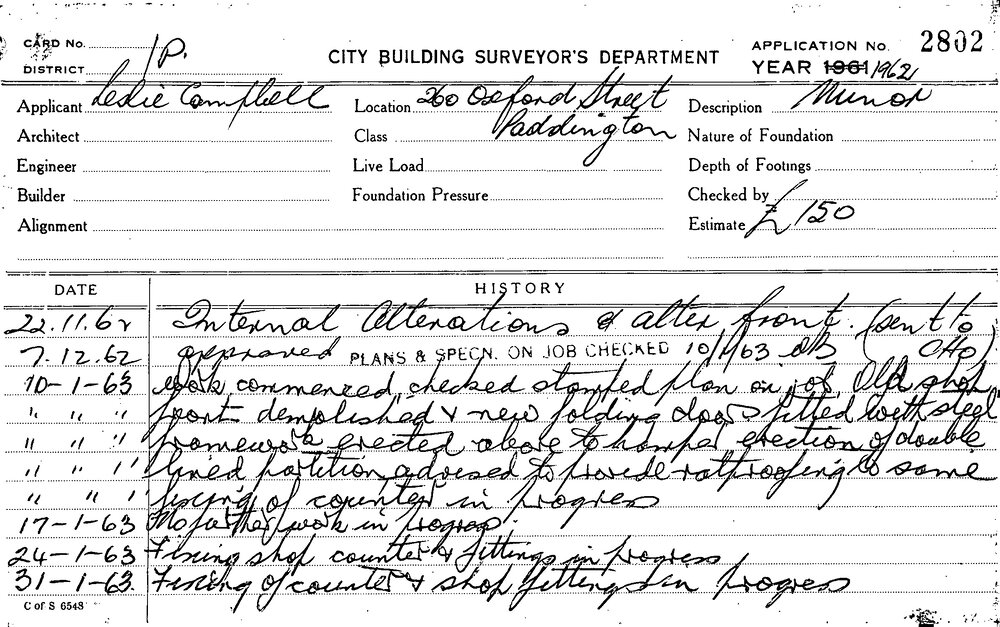 CARD No.
DISTRICT 1P.
CITY BUILDING SURVEYOR'S DEPARTMENT
APPLICATION No. 2802
YEAR 1961 1962
Applicant Leslie Campbell
Location 260 Oxford Street
Paddington
Description Minor
Architect
Class
Nature of Foundation
Engineer
Live Load
Depth of Footings
Builder
Foundation Pressure
Checked by
Alignment
Estimate £150
DATE HISTORY
22.11.62 Internal Alterations & alter front. (sent to
7.12.62 approved PLANS & SPECN. ON JOB CHECKED 10/1/63
10-1-63 work commenced, checked stamped plan on job Old shop
" " " front demolished & new folding doors fitted with steel
" " " framework erected above to hamper erection of double
" " " lined partition advised to provide ratproofing to same
" " " fixing of counter in progress
17-1-63 No further work in progress.
24-1-63 Fixing shop counter & fittings in progress
31-1-63. Fixing of counter & shop fittings in progress
C of S 6548